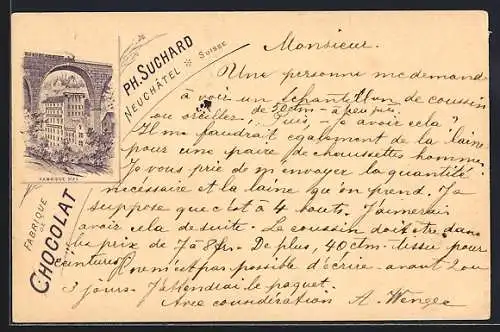 FABRIQUE DE
CHOCOLAT
PH. SUCHARD
NEUCHÂTEL
Suisse
Monsieur.
Une personne me demand
à avoir un échantillon de coussin
ou oreiller, de 50ctm - à peu près
Puis-je avoir cela?
Il me faudrait egalement de la laine
pour une paire de chaussettes homme.
Je vous prie de m'envoyer la quantité
nécessaire et la laine qu'on prend. Je
suppose que c'est à 4 bouts. J'aimerais
avoir cela de suite. Le coussin doit être dans
les prix de 7 à 8 fr. De plus, 40 ctm. tissu pour
ceintures
Il ne m'est pas possible d'écrire avant 2 ou
3 jours. J'attendrai le paquet.
Avec considération A. Wenger